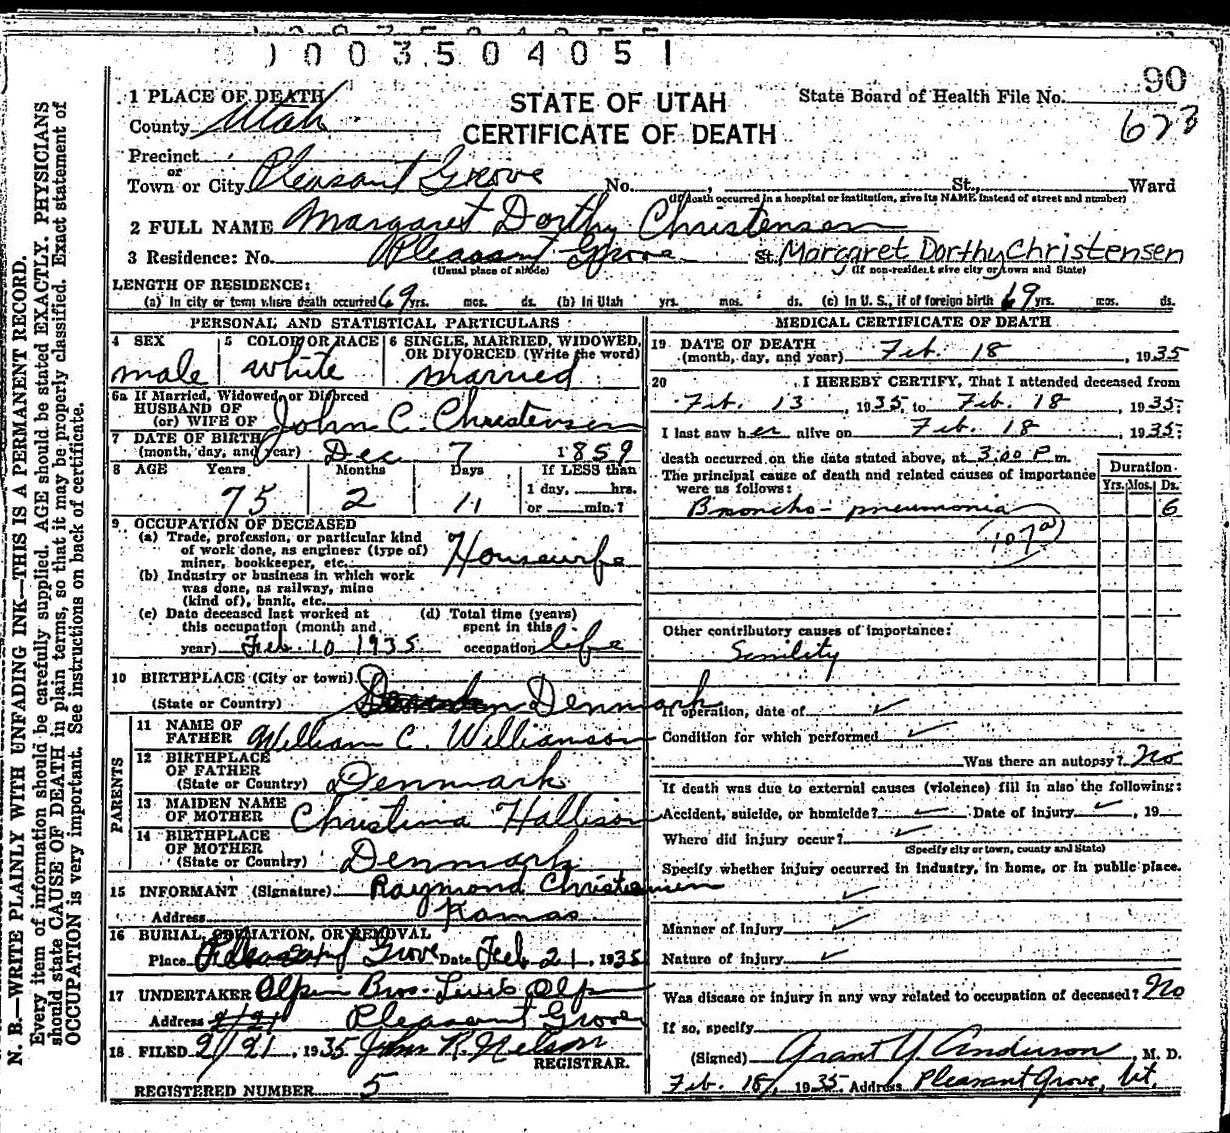 1003504051
90
1 PLACE OF DEATH
STATE OF UTAH
State Board of Health File No.
County Utah
CERTIFICATE OF DEATH
623
Precinct
or
Town or City Pleasant Grove No. , St., Ward
(If death occurred in a hospital or institution, give its NAME instead of street and number)
2 FULL NAME Margaret Dorthy Christensen
3 Residence: No. Pleasant Grove St. Margaret Dorthy Christensen
(Usual place of abode) (If non-resident give city or town and State)
LENGTH OF RESIDENCE:
(a) In city or town where death occurred 69 yrs. mos. ds. (b) In Utah yrs. mos. ds. (c) In U. S., if of foreign birth 69 yrs. mos. ds.
PERSONAL AND STATISTICAL PARTICULARS
4 SEX 5 COLOR OR RACE 6 SINGLE, MARRIED, WIDOWED, OR DIVORCED (Write the word)
male white married
6a If Married, Widowed, or Divorced
HUSBAND OF
(or) WIFE OF John C. Christensen
7 DATE OF BIRTH
(month, day, and year) Dec 7 1859
8 AGE Years Months Days If LESS than
1 day, hrs.
75 2 11 or min.?
9 OCCUPATION OF DECEASED
(a) Trade, profession, or particular kind
of work done, as engineer (type of)
miner, bookkeeper, etc. Housewife
(b) Industry or business in which work
was done, as railway, mine
(kind of), bank, etc.
(c) Date deceased last worked at (d) Total time (years)
this occupation (month and spent in this
year) Feb. 10 1935 occupation life
10 BIRTHPLACE (City or town)
(State or Country) Denmark
PARENTS
11 NAME OF
FATHER William C. Williamson
12 BIRTHPLACE
OF FATHER
(State or Country) Denmark
13 MAIDEN NAME
OF MOTHER Christina Hallison
14 BIRTHPLACE
OF MOTHER
(State or Country) Denmark
15 INFORMANT (Signature) Raymond Christensen
Address Kamas
16 BURIAL, CREMATION, OR REMOVAL
Place Pleasant Grove Date Feb 21, 1935
17 UNDERTAKER Olpin Bros. Lewis Olpin
Address 2/21 Pleasant Grove
18 FILED 2/21, 1935 John R. Nelson
REGISTRAR.
REGISTERED NUMBER 5
MEDICAL CERTIFICATE OF DEATH
19 DATE OF DEATH
(month, day, and year) Feb. 18, 1935
20 I HEREBY CERTIFY, That I attended deceased from
Feb. 13, 1935, to Feb. 18, 1935;
I last saw her alive on Feb. 18, 1935;
death occurred on the date stated above, at 3:00 P.m.
The principal cause of death and related causes of importance
were as follows:
Duration
Yrs. Mos. Ds.
Broncho-pneumonia 6
107a
Other contributory causes of importance:
Senility
If operation, date of ✓
Condition for which performed ✓
Was there an autopsy? No
If death was due to external causes (violence) fill in also the following:
Accident, suicide, or homicide? ✓ Date of injury ✓, 19
Where did injury occur? ✓
(Specify city or town, county and State)
Specify whether injury occurred in industry, in home, or in public place.
✓
Manner of injury ✓
Nature of injury ✓
Was disease or injury in any way related to occupation of deceased? No
If so, specify
(Signed) Grant Y. Anderson, M. D.
Feb. 18, 1935 Address Pleasant Grove, Ut.
N. B.—WRITE PLAINLY WITH UNFADING INK—THIS IS A PERMANENT RECORD.
Every item of information should be carefully supplied. AGE should be stated EXACTLY. PHYSICIANS
should state CAUSE OF DEATH in plain terms, so that it may be properly classified. Exact statement of
OCCUPATION is very important. See instructions on back of certificate.